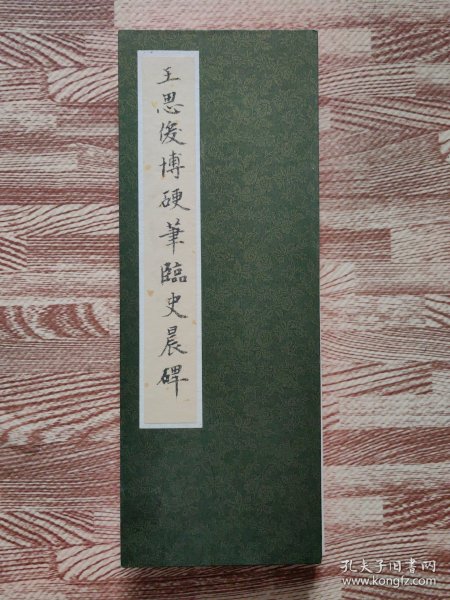 王思俊博硬筆臨史晨碑
孔夫子旧书网
www.kongfz.com